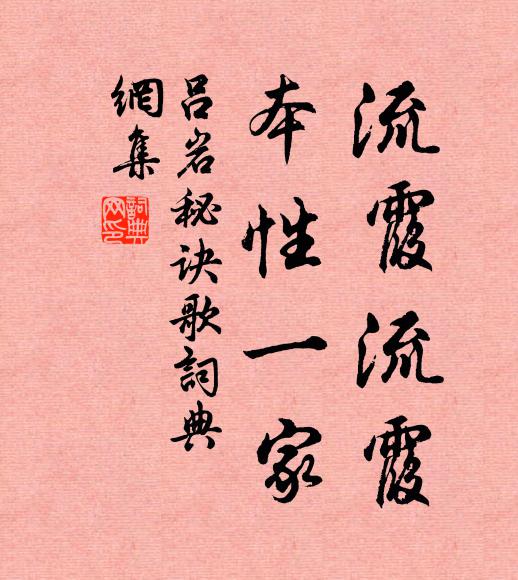 流霞流霞
本性一家
吕岩秘诀歌詞典
網集
詞典
网印